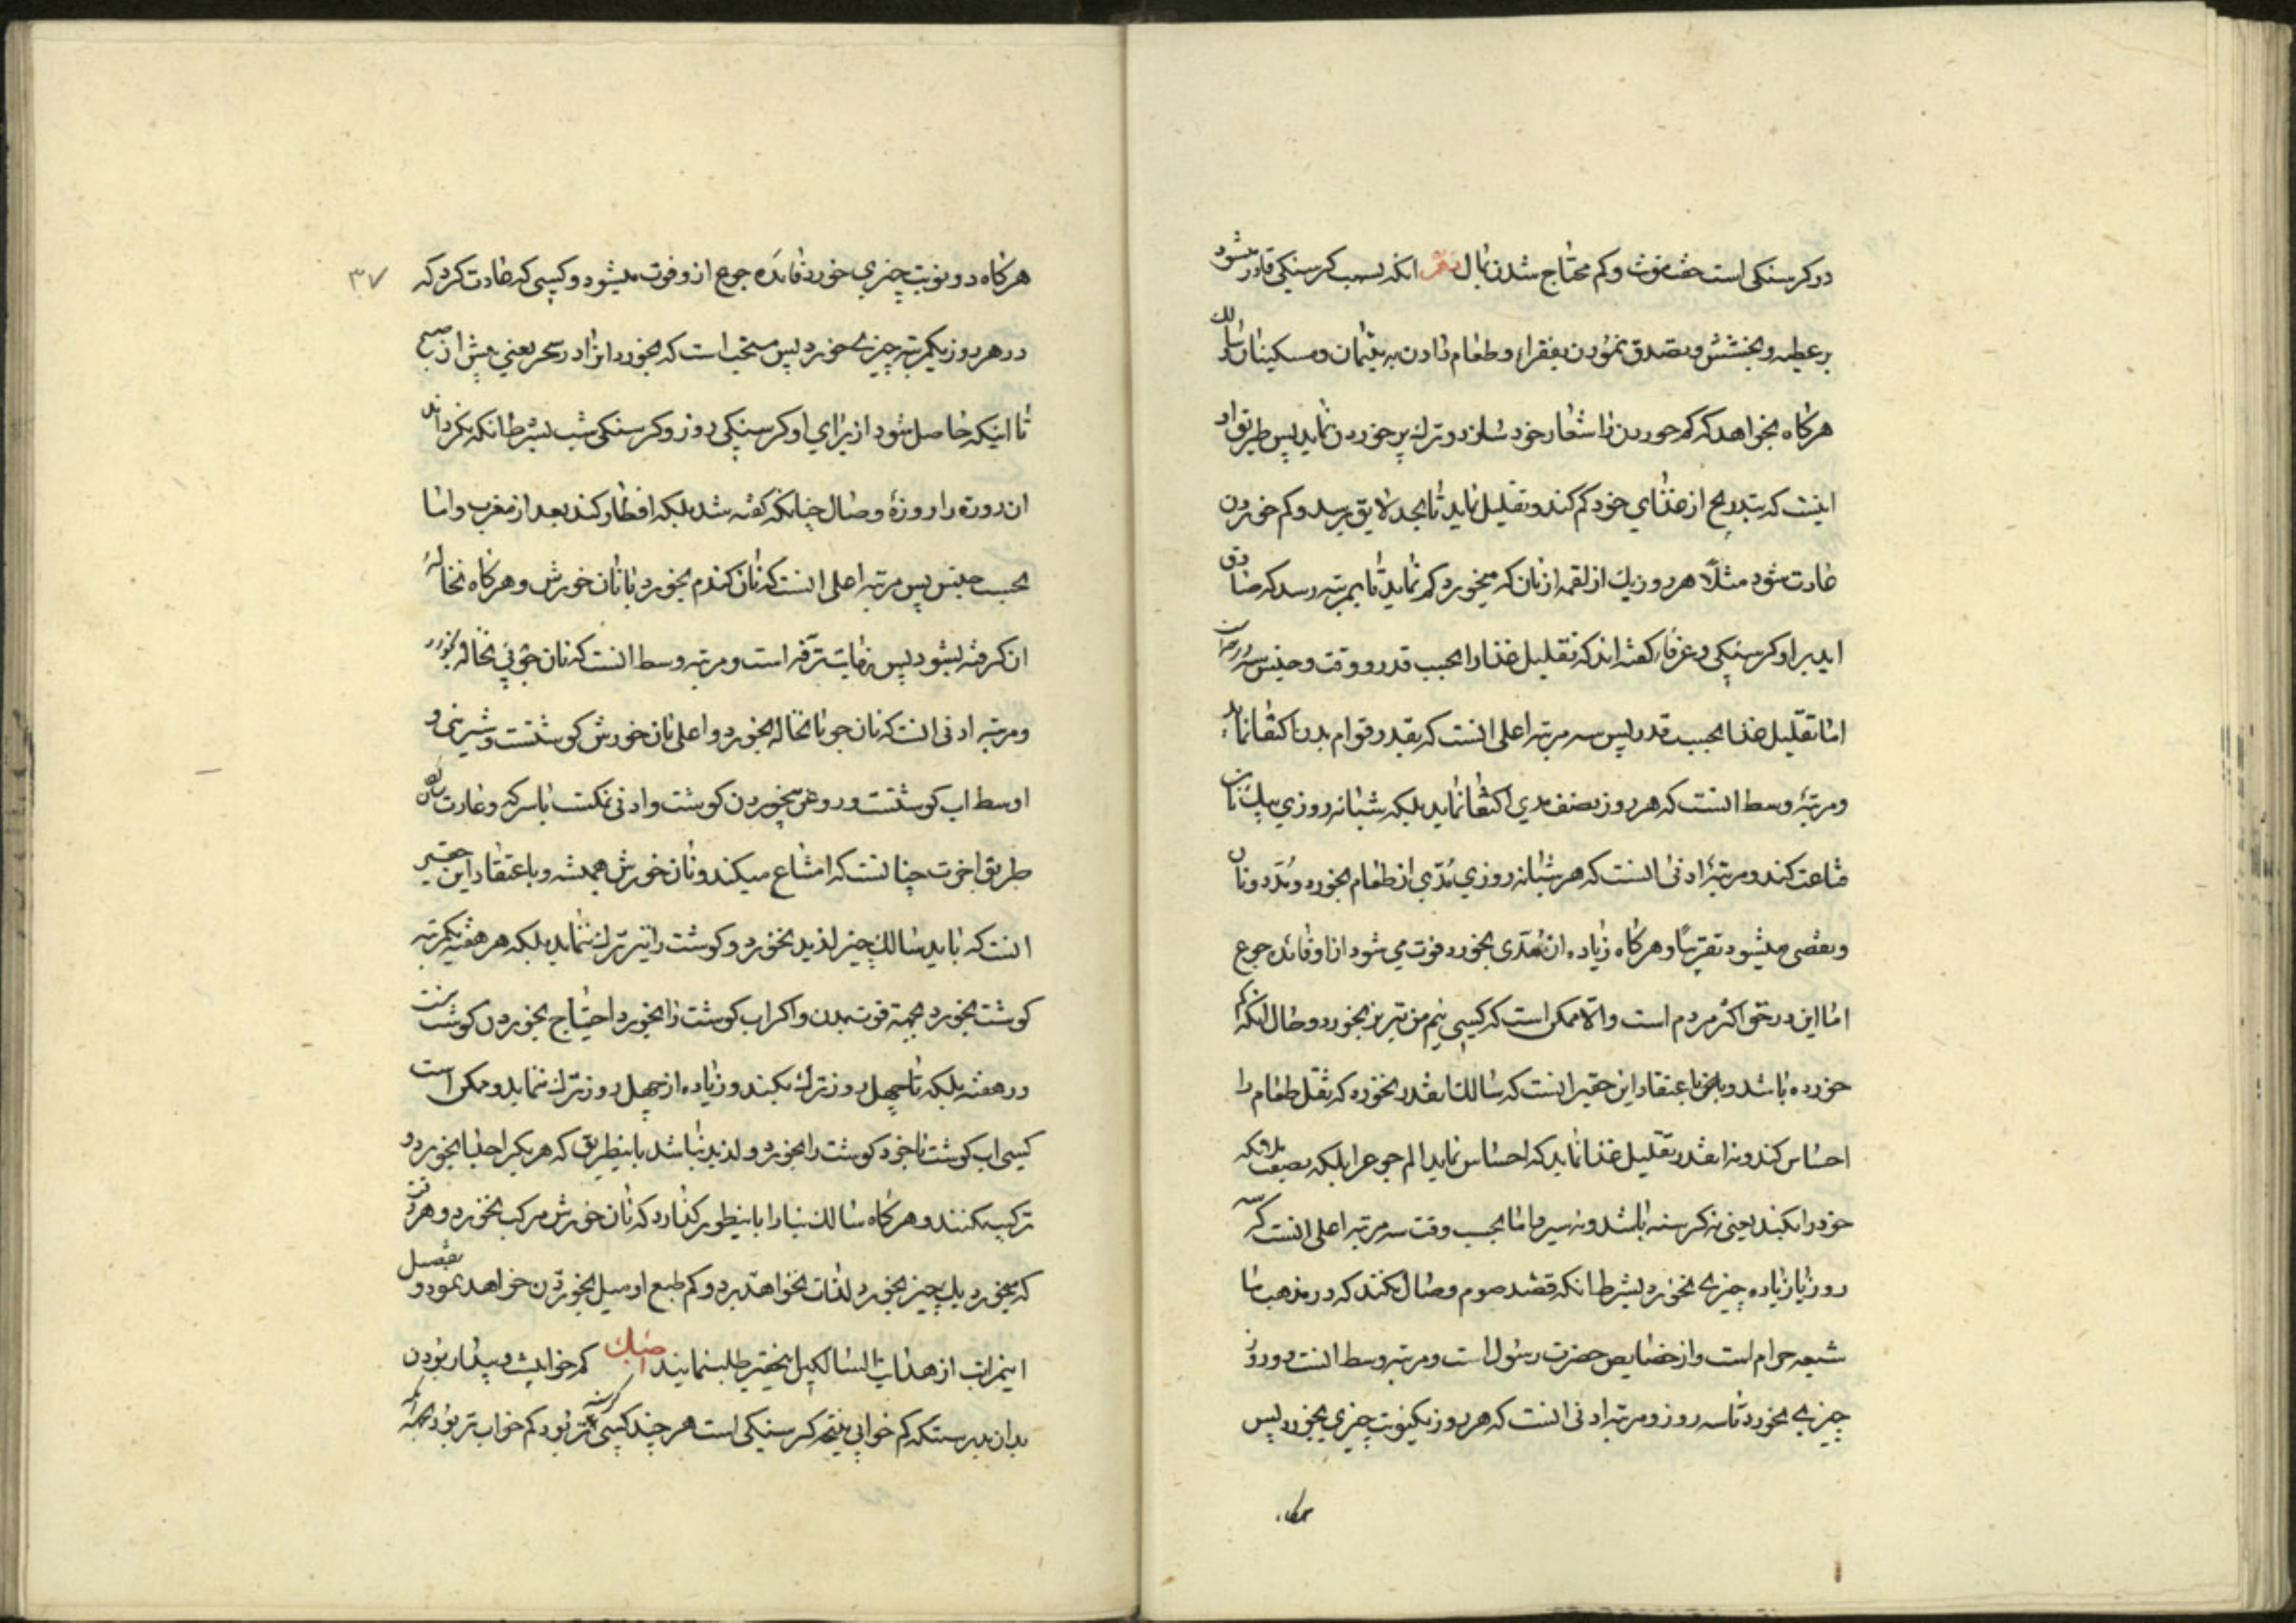 در کرسنکی است خفت مؤنت و کم محتاج شدن بمال انکه بسبب کرسنکی قادر میشود
بر عطیه و بخشش و تصدق نمودن بفقراء و طعام دادن به یتیمان و مسکینان سالك
هرکاه بخواهد که کم خوردن را شعار خود سازد و ترك پر خوردن نماید پس طریق او
اینست که بتدریج از غذای خود کم کند و تقلیل نماید تا بحد لایق برسد و کم خوردن
عادت شود مثلاً هر روز یك از لقمه از نان که میخورد کم نماید تا بمرتبه رسد که صادق
اید بر او کرسنکی و عرفاء کفته اند که تقلیل غذا را بحسب قدر و وقت و جنس سه
اما تقلیل غذا بحسب قدر پس سه مرتبه اعلی انست که بقدر قوام بدن اکتفا نماید
و مرتبهٔ وسط انست که هر روز بنصف مدی اکتفا نماید بلکه شبانه روزی بیك نان
قناعت کند و مرتبهٔ ادنی انست که هر شبانه روزی مُدّی از طعام بخورد و مُدّ دو نان
و بعضی میشود تقریباً و هرکاه زیاده از مُدّی بخورد فوت می شود از او فائده جوع
اما این در حق اکثر مردم است و الا ممکن است که کسی نیم من تبریز بخورد و حال انکه کم
خورده باشد و باعتقاد این حقیر انست که سالك انقدر بخورد که ثقل طعام را
احساس کند و نه انقدر تقلیل غذا نماید که احساس نماید الم جوع را بلکه
خود را بکند یعنی نه کرسنه باشد و نه سیر و اما بحسب وقت سه مرتبه اعلی انست که سه
روز یا زیاده چیزی نخورد بشرط انکه قصد صوم وصال نکند که در مذهب ما
شیعه حرام است و از خصایص حضرت رسول است و مرتبه وسط انست دو روز
چیزی نخورد تا سه روز و مرتبه ادنی انست که هر روز یکنوبت چیزی بخورد پس
هرکاه
۳۷
هرکاه دو نوبت چیزی خورد فائده جوع از او فوت میشود و کسی که عادت کرد که
در هر روز یکمرتبه چیزی خورد پس مستحب است که بخورد انرا در سحر یعنی پیش از صبح
تا اینکه حاصل شود از برای او کرسنکی روز و کرسنکی شب بشرط انکه نکرداند
ان روزه را روزهٔ وصال چنانکه کفته شد بلکه افطار کند بعد از مغرب و اما
بحسب جنس پس مرتبه اعلی انست که نان کندم بخورد با نان خورش و هرکاه نخالهٔ
ان کرفته بشود پس نهایت ترفه است و مرتبه وسط انست که نان جو بی نخاله بخورد
و مرتبه ادنی انست که نان جو با نخاله بخورد و اعلی نان خورش کوشتست و شیرینی و
اوسط اب کوشتست و روغن بیخوردن کوشت و ادنی نمکست یا سرکه و عادت سالکان
طریق اخرت چنانست که امتناع میکند و نان خورش همیشه و باعتقاد این حقیر
انست که باید سالك چیز لذیذ نخورد و کوشت را نیز ترك ننماید بلکه هر هفته یکمرتبه
کوشت بخورد بجهة قوت بدن و اکر اب کوشت را بخورد احتیاج بخوردن کوشت نیست
در هفته بلکه تا چهل روز ترك بکند و زیاده از چهل روز ترك ننماید و ممکن است
کسی اب کوشت با خود کوشت را بخورد و لذیذ نباشد باینطریق که هر یك را جدا بخورد و
ترکیب نکنند و هرکاه سالك بنا را باینطور کذارد که نان خورش مرکب نخورد و هر وقت
که بخورد یك چیز بخورد لذت نخواهد برد و کم طبع او میل بخوردن خواهد نمود و تفصیل
اینمراتب از هدایة السالکین اینحقیر طلب نمایند کم خوابیست و بیدار بودن
بدان بدرستکه کم خوابی نتیجه کرسنکی است هر چند کسی کرسنه تر بود کم خواب تر بود